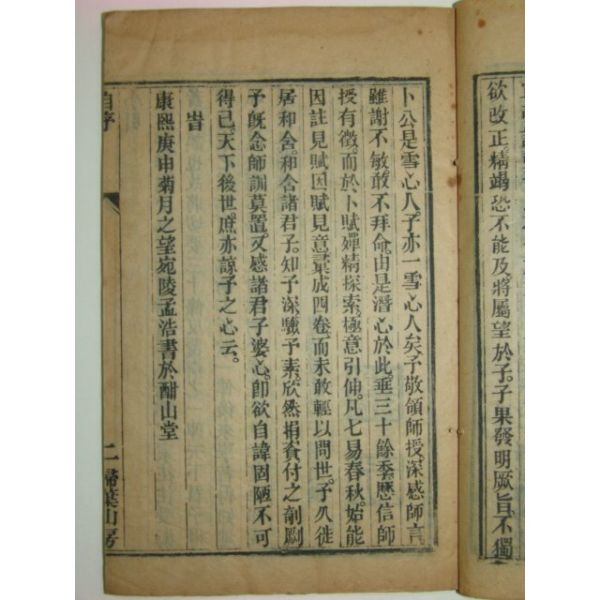 欲改正精竭恐不能及將屬望於子子果發明厥旨不獨
卜公是雪心人子亦一雪心人矣予敬領師授深感師言
雖謝不敏敢不拜命由是潛心於此垂三十餘季歷信師
授有徵而於卜賦殫精探索極意引伸凡七易春秋始能
因註見賦因賦見意彙成四卷而未敢輕以問世予久徙
居和含和含諸君子知予深驗予素欣然捐資付之剞劂
予既念師訓莫置又感諸君子婆心卽欲自諱固陋不可
得已天下後世庶亦諒予之心云
旹
康熙庚申菊月之望宛陵孟浩書於酣山堂
自序
二
掃葉山房